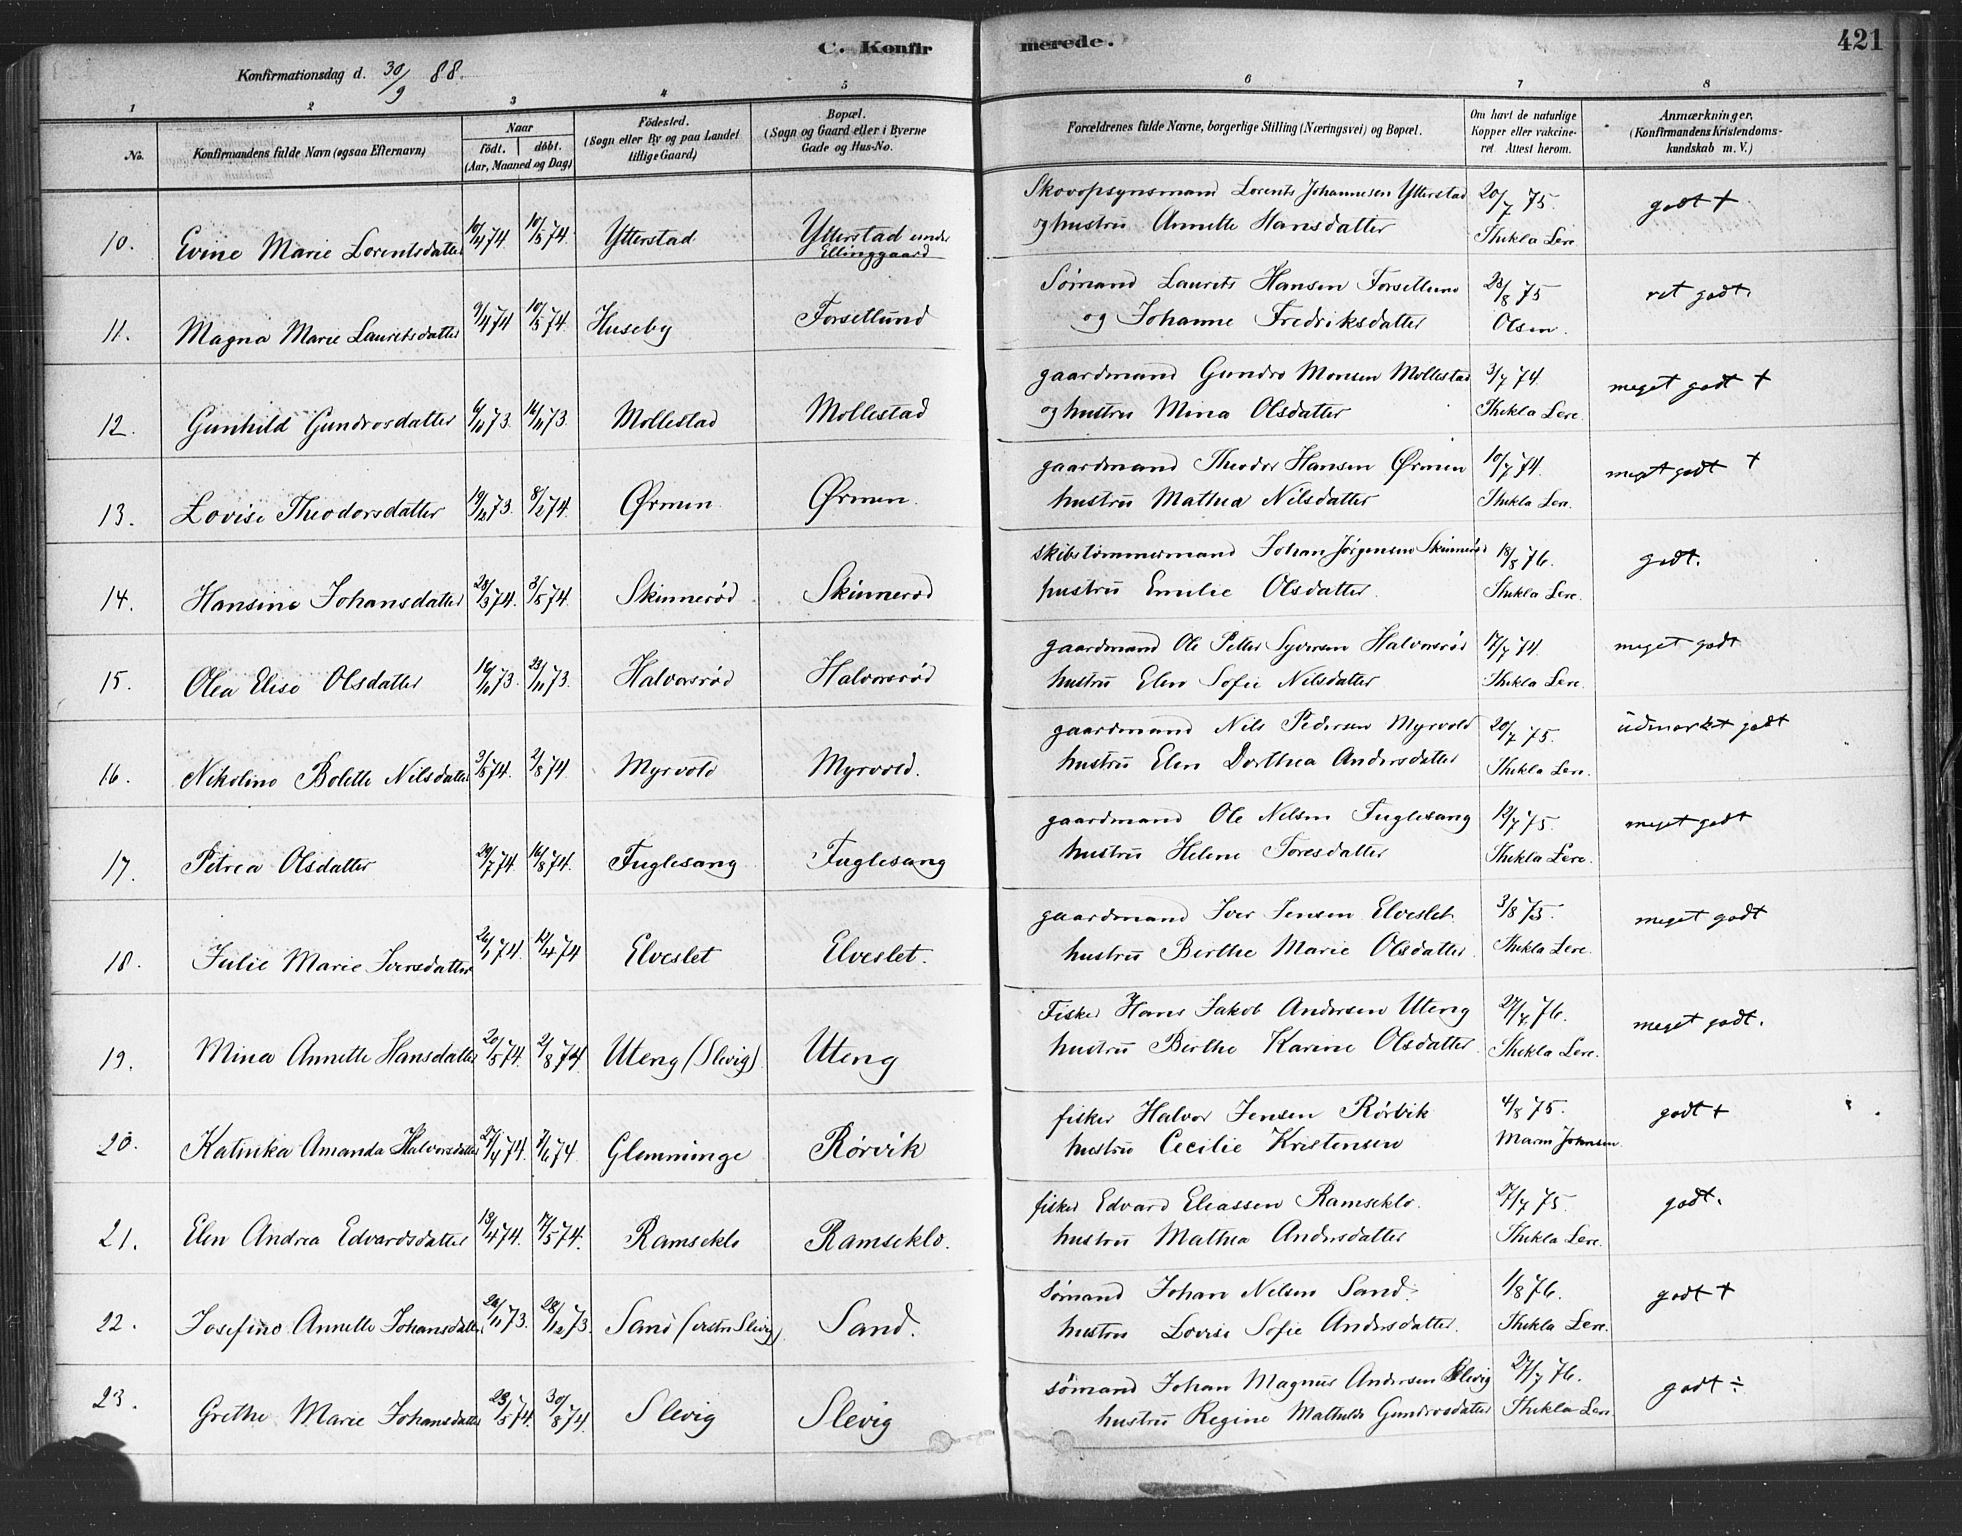 C. Konfirmerede.
421
Konfirmationsdag d. 30/9 88.
1 2 3 4 5 6 7 8
No. Konfirmandens fulde Navn (ogsaa Efternavn) Naar födt. döbt. (Aar, Maaned og Dag) Födested. (Sogn eller By og paa Landet tillige Gaard) Bopæl. (Sogn og Gaard eller i Byerne Gade og Hus-No. Forældrenes fulde Navne, borgerlige Stilling (Næringsvei) og Bopæl. Om havt de naturlige Kopper eller vakcineret. Attest herom. Anmærkninger. (Konfirmandens Kristendomskundskab m. V.)
10. Evine Marie Lorentsdatter 10/4 74. 10/5 74. Ytterstad Ytterstad under Ellinggaard Skovopsynsmand Lorents Johannesen Ytterstad 20/7 75. godt +
og hustru Annette Hansdatter Thekla Lere
11. Magna Marie Lauritsdatter 9/4 74 10/5 74. Huseby Forsetlund Sømand Laurits Hansen Forsetlund 23/8 75 ret godt.
og Johanne Fredriksdatter Olsen.
12. Gunhild Gundrosdatter 73. 73. Mollestad Mollestad gaardmand Gundro Monsen Mollestad 3/7 74. meget godt +
og hustru Mina Olsdatter Thekla Lere.
13. Lovise Theodorsdatter 19/12 73. 8/2 74. Ørmen Ørmen. gaardmand Theodor Hansen Ørmen 10/7 74. meget godt +
hustru Mathea Nilsdatter Thekla Lere.
14. Hansine Johansdatter 28/3 74. 3/5 74. Skinnerød Skinnerød skibstømmermand Johan Jørgensen Skinnerød 18/8 76. godt.
hustru Emilie Olsdatter. Thekla Lere.
15. Olea Elise Olsdatter 73. 23/11 73. Halvorsrød Halvorsrød gaardmand Ole Petter Syversen Halvorsrød 17/7 74. meget godt
hustru Elen Sofie Nilsdatter. Thekla Lere.
16. Nikoline Bolette Nilsdatter 3/5 74. 2/8 74. Myrvold Myrvold. gaardmand Nils Pedersen Myrvold 20/7 75. üdmærket godt
hustru Elen Dorthea Andersdatter Thekla Lere.
17. Petrea Olsdatter 74. 16/8 74. Fuglesang Fuglesang gaardmand Ole Nilsen Fuglesang 12/7 75. meget godt
hustru Helene Toresdatter Thekla Lere.
18. Julie Marie Iversdatter 26/1 74. 12/4 74 Elveslet Elveslet. gaardmand Iver Jensen Elveslet. 3/8 75. meget godt
hustru Berthe Marie Olsdatter. Thekla Lere.
19. Mina Annette Hansdatter 20/5 74. 2/8 74. Uteng (Slevig) Uteng Fisker Hans Jakob Andersen Uteng 27/7 76. meget godt.
hustru Berthe Karine Olsdatter. Thekla Lere.
20. Katinka Amanda Halvorsdatter 27/4 74. 74. Glemminge Rørvik fisker Halvor Jensen Rørvik 4/8 75. godt +
hustru Cecilie Kristensen Johnsen.
21. Elen Andrea Edvardsdatter 13/4 74. 17/5 74. Ramseklo Ramseklo. fisker Edvard Eliassen Ramseklo. 27/7 75. godt.
hustru Mathea Andersdatter Thekla Lere.
22. Josefine Annette Johansdatter 73. 28/12 73. Sand (vestre Slevig) Sand. sømand Johan Nilsen Sand. 1/8 76. godt +
hustru Lovise Sofie Andersdatter. Thekla Lere.
23. Grethe Marie Johansdatter 23/5 74. 30/8 74. Slevig Slevig sømand Johan Magnus Andersen Slevig 27/7 76. godt ÷
hustru Regine Mathilde Gundrosdatter Thekla Lere.